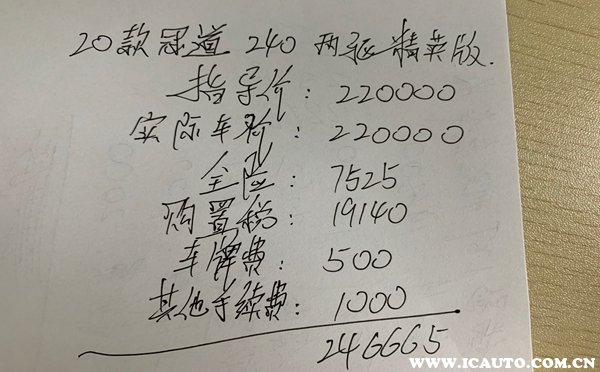 20款冠道 240 两驱精英版.
指导价: 220000
实际车价: 220000
全险: 7525
购置税: 19140
车牌费: 500
其他手续费: 1000
246665
WWW.ICAUTO.COM.CN